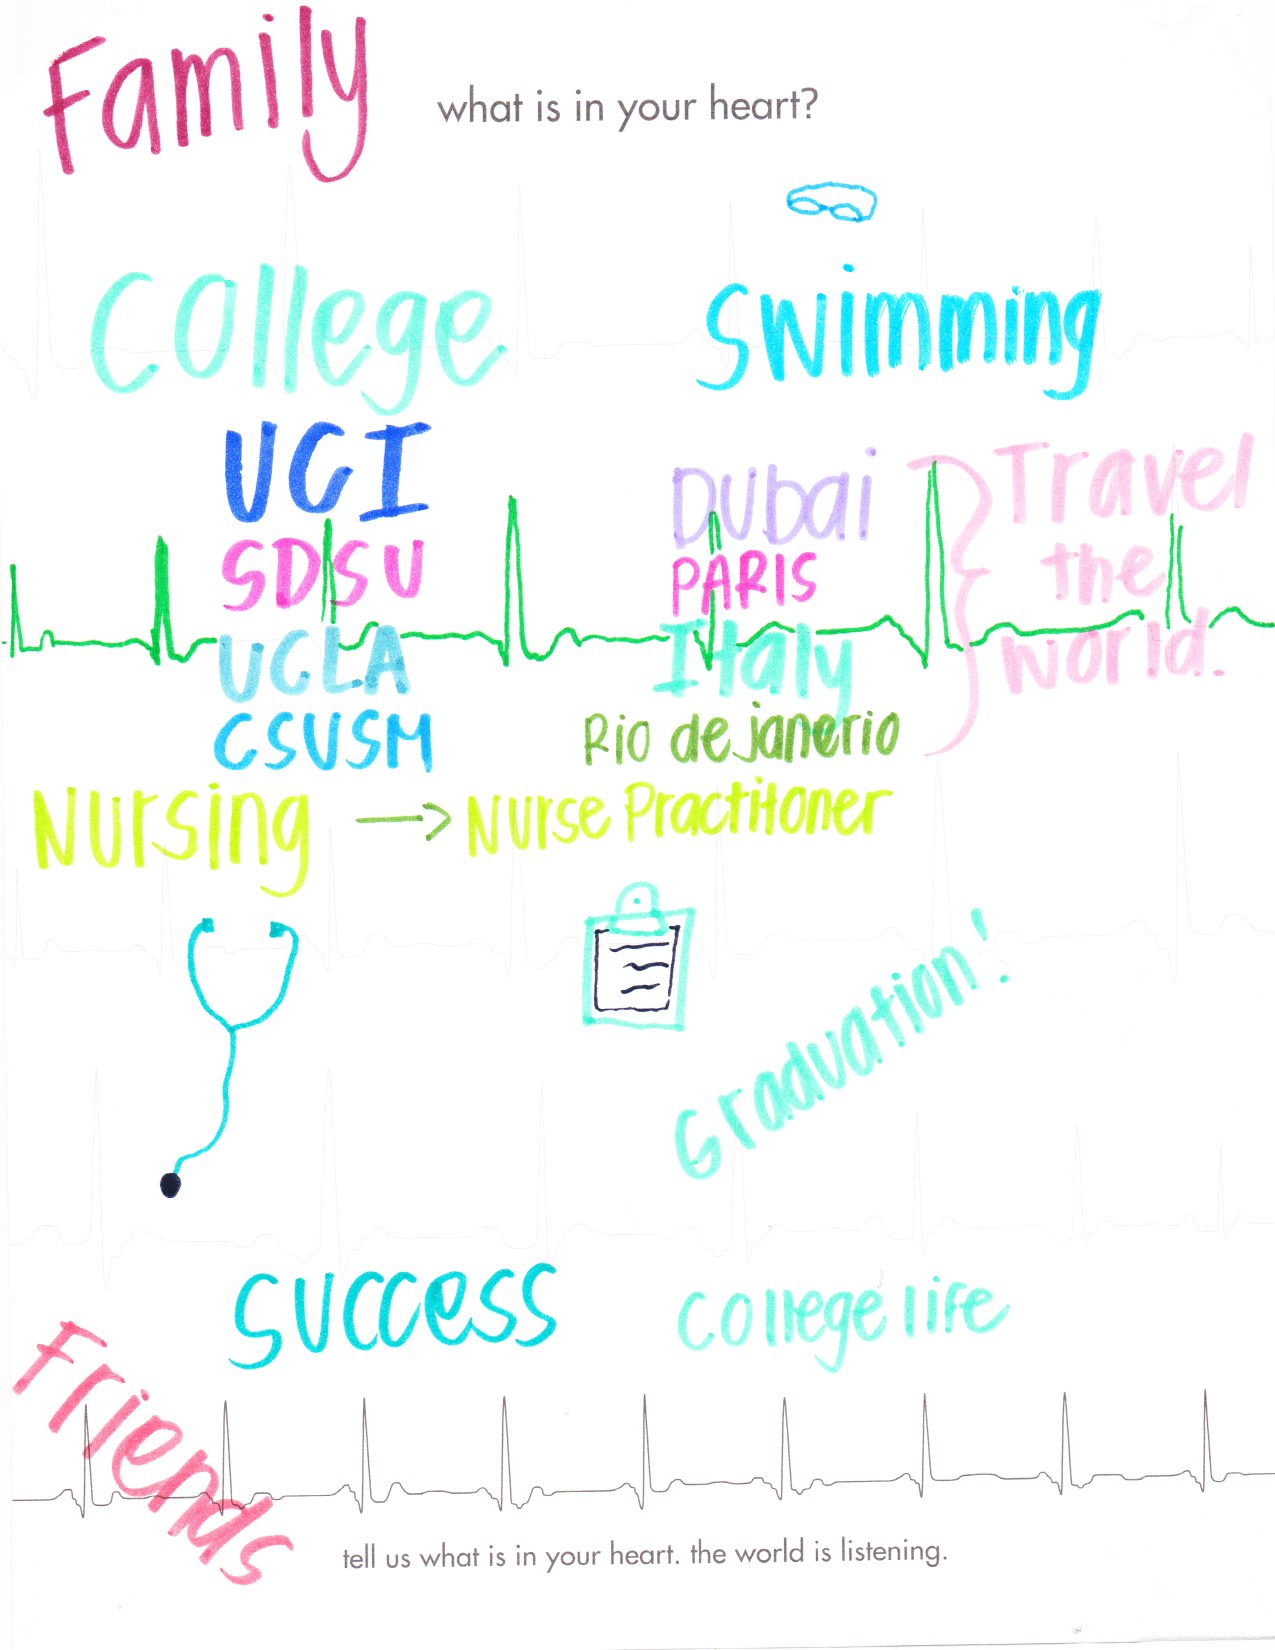 Family
what is in your heart?
College
Swimming
UCI
SDSU
UCLA
CSUSM
Dubai
PARIS
Italy
Rio de janerio
Travel
the
world.
Nursing → Nurse Practitoner
Graduation!
Success
College life
Friends
tell us what is in your heart. the world is listening.